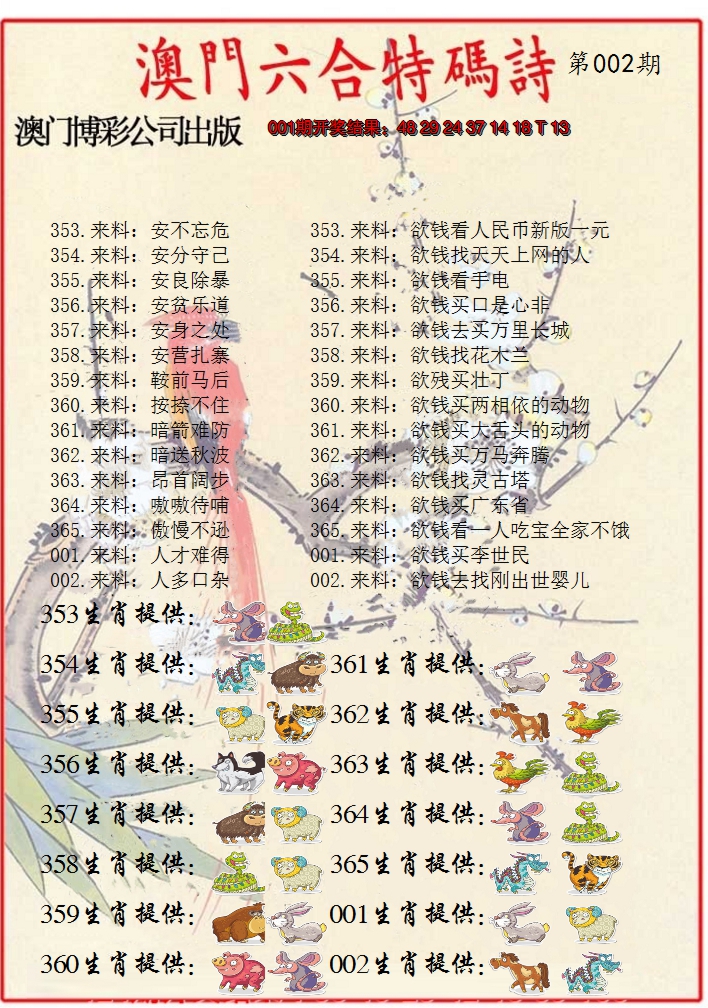 澳門六合特碼詩 第002期
澳门博彩公司出版 001期开奖结果：48 29 24 37 14 18 T 13
353.来料：安不忘危 353.来料：欲钱看人民币新版一元
354.来料：安分守己 354.来料：欲钱找天天上网的人
355.来料：安良除暴 355.来料：欲钱看手电
356.来料：安贫乐道 356.来料：欲钱买口是心非
357.来料：安身之处 357.来料：欲钱去买万里长城
358.来料：安营扎寨 358.来料：欲钱找花木兰
359.来料：鞍前马后 359.来料：欲残买壮丁
360.来料：按捺不住 360.来料：欲钱买两相依的动物
361.来料：暗箭难防 361.来料：欲钱买大舌头的动物
362.来料：暗送秋波 362.来料：欲钱买万马奔腾
363.来料：昂首阔步 363.来料：欲钱找灵古塔
364.来料：嗷嗷待哺 364.来料：欲钱买广东省
365.来料：傲慢不逊 365.来料：欲钱看一人吃宝全家不饿
001.来料：人才难得 001.来料：欲钱买李世民
002.来料：人多口杂 002.来料：欲钱去找刚出世婴儿
353生肖提供：
354生肖提供： 361生肖提供：
355生肖提供： 362生肖提供：
356生肖提供： 363生肖提供：
357生肖提供： 364生肖提供：
358生肖提供： 365生肖提供：
359生肖提供： 001生肖提供：
360生肖提供： 002生肖提供：